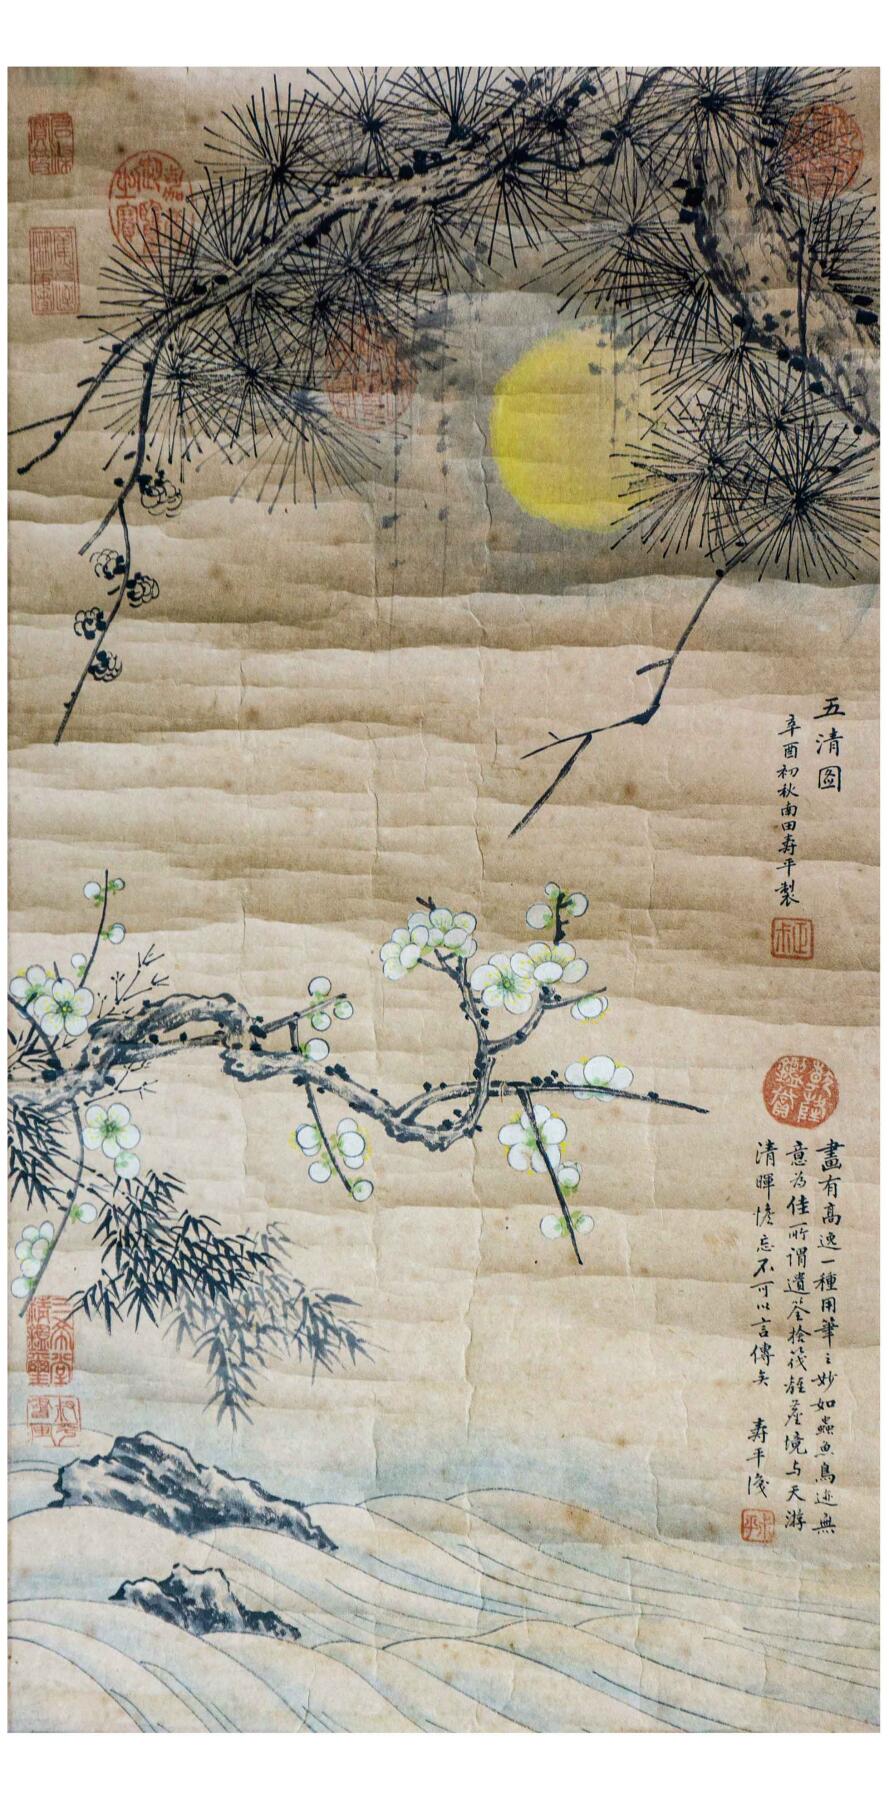 五清圖
辛酉初秋南田壽平製
畫有高逸一種用筆之妙如蟲魚鳥迹無
意為佳所謂遺筌捨筏離塵境与天游
清暉憺忘不可以言傳矣
壽平識
乾隆
鑑賞
三希堂
精鑑璽